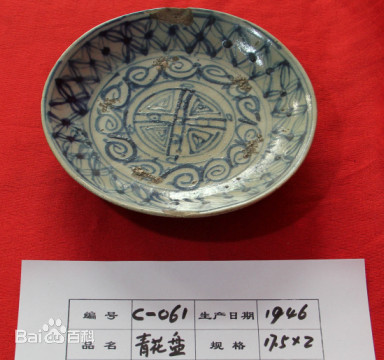 编号 C-061 生产日期 1946
品名 青花盘 规格 17.5×2
Bai百科